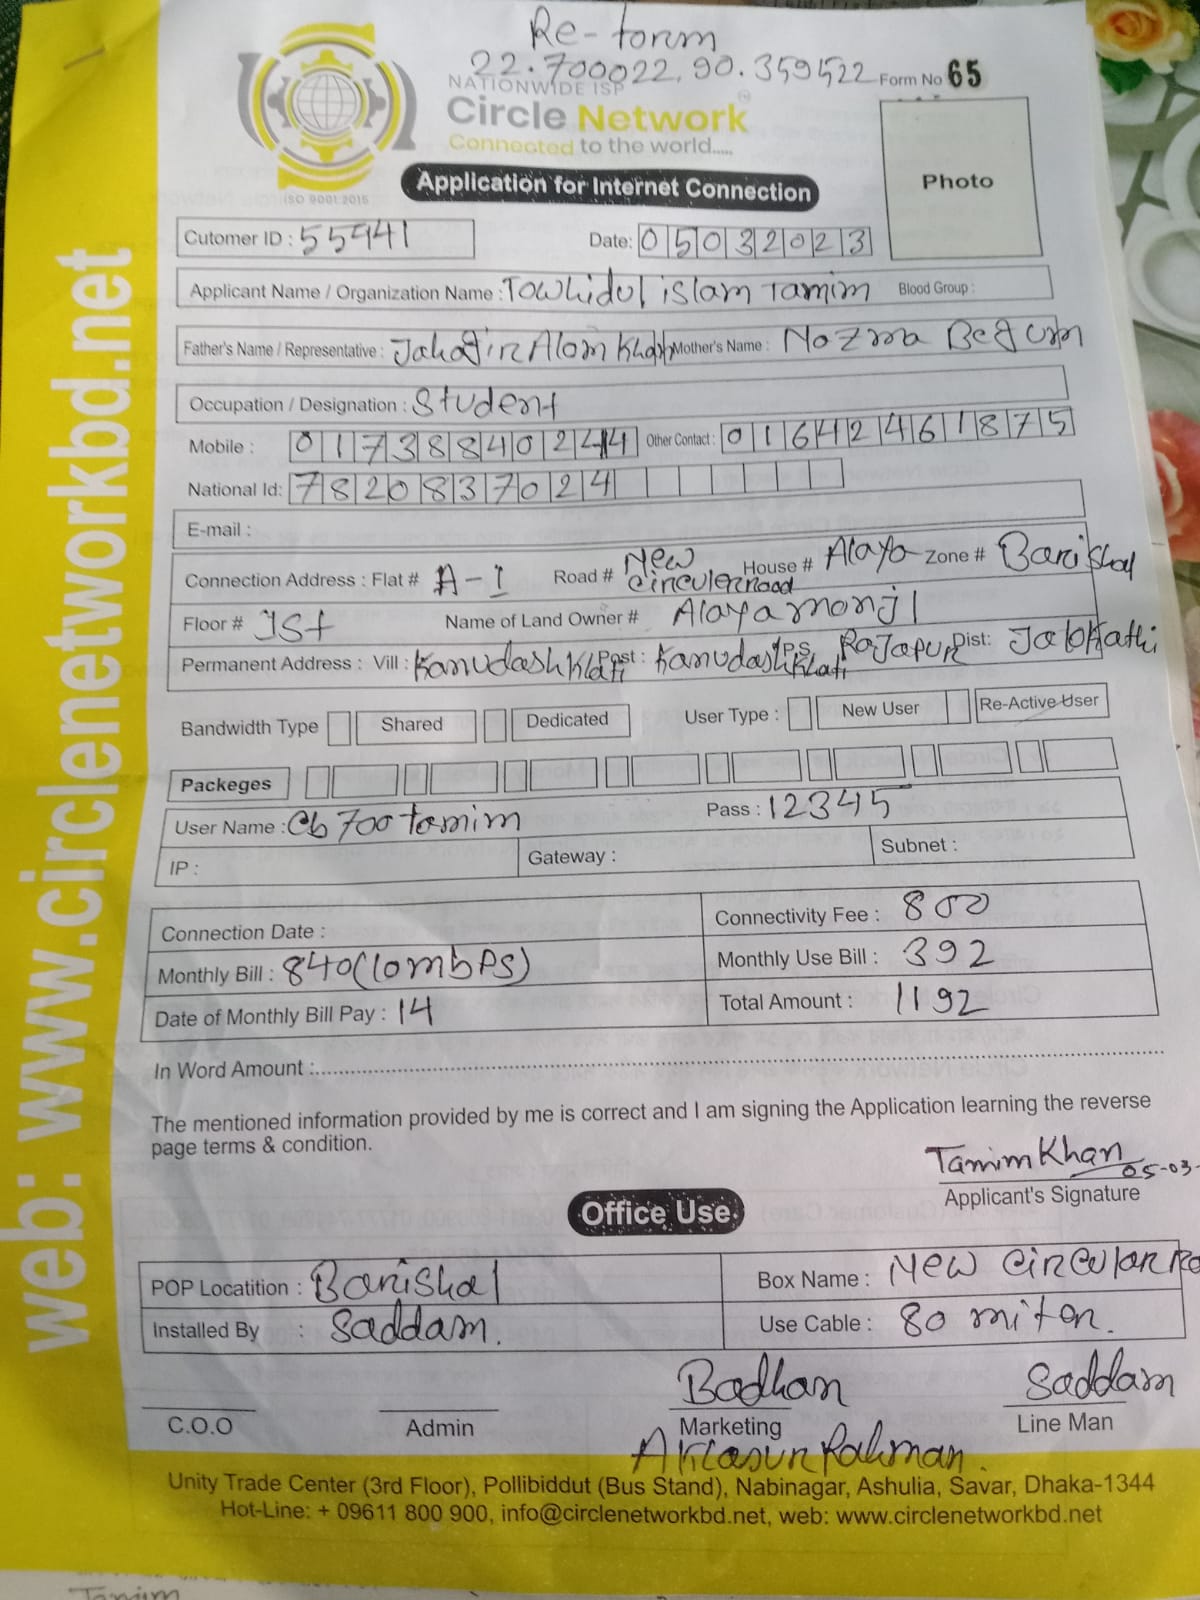 Re-form
22.700022, 90.359522 Form No 65
NATIONWIDE ISP
Circle Network
Connected to the world.....
ISO 9001:2015
Application for Internet Connection
Photo
Cutomer ID : 55941
Date: 05032023
Applicant Name / Organization Name : Towhidul islam Tamim Blood Group :
Father's Name / Representative : Jahagir Alom Khan Mother's Name : Nazma Begum
Occupation / Designation : Student
Mobile : 01738840244 Other Contact : 01642461875
National Id: 7820837024
E-mail :
Connection Address : Flat # A-1 Road # New circuler road House # Alaya Zone # Barishal
Floor # 1st Name of Land Owner # Alaya monjil
Permanent Address : Vill : Kanudashkhati Post : Kanudashkhati P.S RaJapur Dist: Jalokathi
Bandwidth Type Shared Dedicated User Type : New User Re-Active User
Packeges
User Name : Cb700tamim Pass : 12345
IP : Gateway : Subnet :
Connection Date : Connectivity Fee : 800
Monthly Bill : 840(10mbPS) Monthly Use Bill : 392
Date of Monthly Bill Pay : 14 Total Amount : 1192
In Word Amount :
The mentioned information provided by me is correct and I am signing the Application learning the reverse
page terms & condition.
Tamim Khan
05-03-
Applicant's Signature
Office Use
POP Locatition : Barishal Box Name : New Circular Ro
Installed By : Saddam. Use Cable : 80 miter.
Badhan Saddam
C.O.O Admin Marketing Line Man
Rahman.
Unity Trade Center (3rd Floor), Pollibiddut (Bus Stand), Nabinagar, Ashulia, Savar, Dhaka-1344
Hot-Line: + 09611 800 900, info@circlenetworkbd.net, web: www.circlenetworkbd.net
web: www.circlenetworkbd.net
Tamim